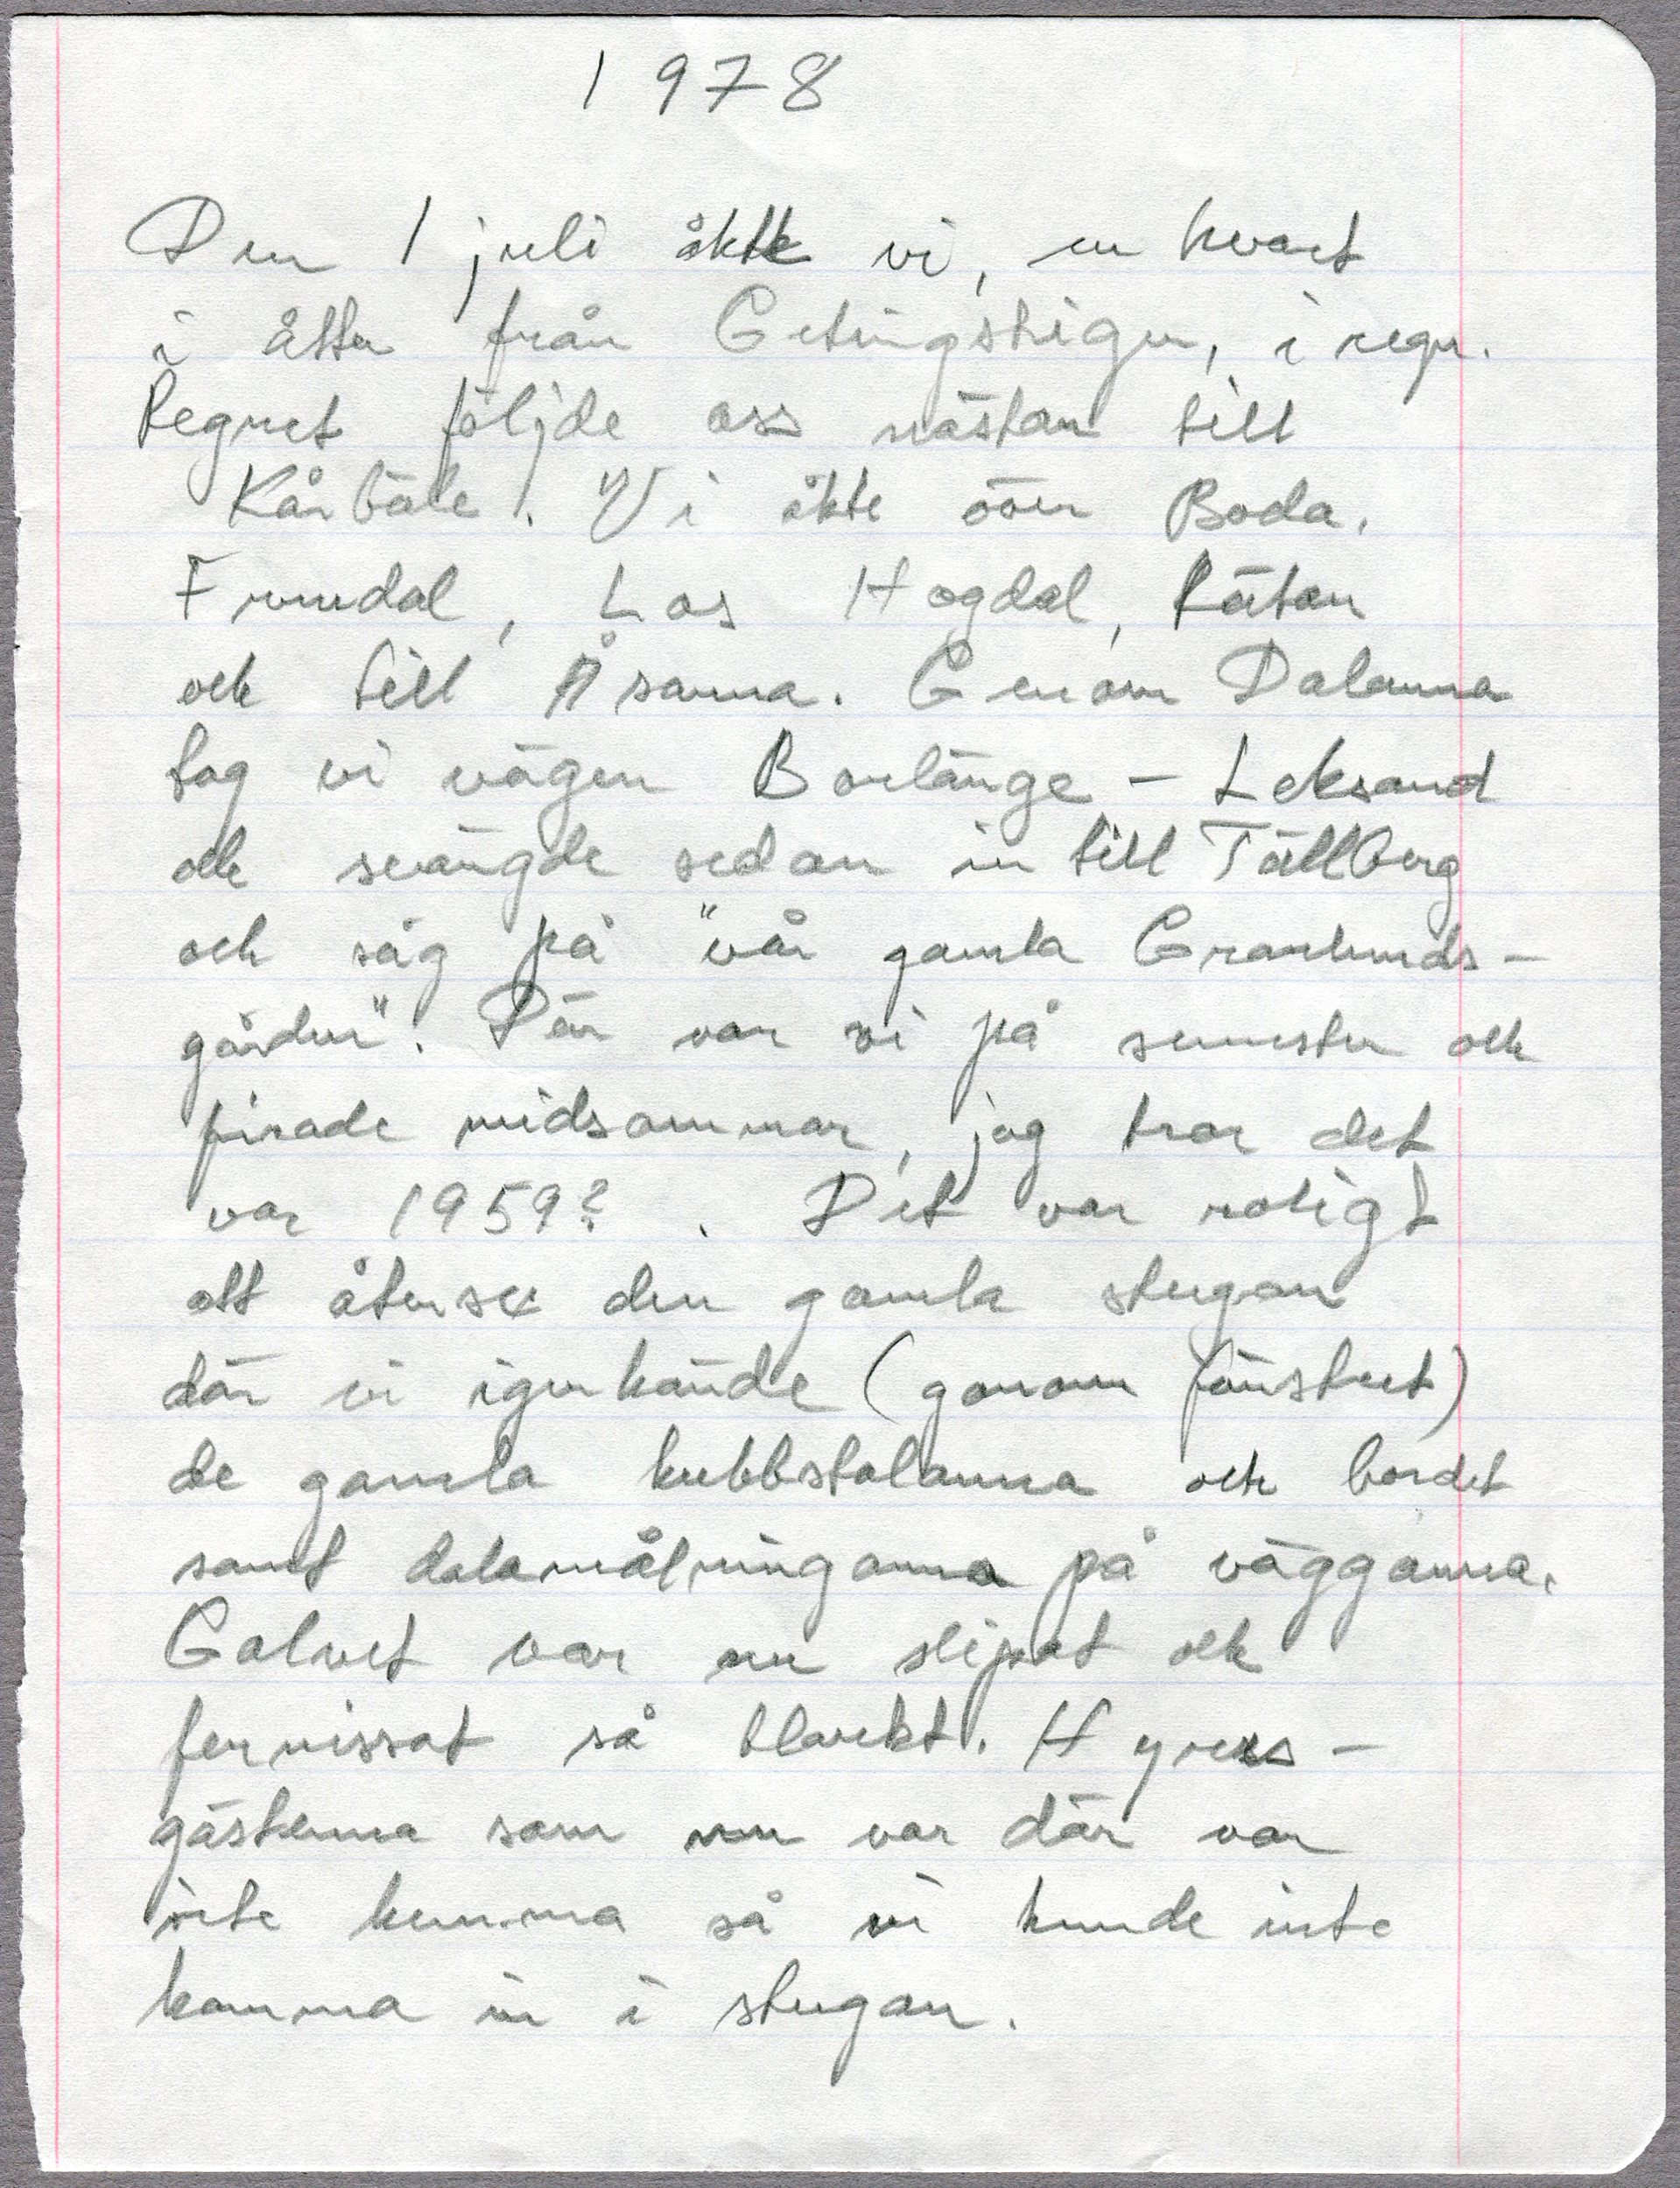 1978
Den 1 juli åkte vi, en kvart
i åtta från Getingstigen, i regn.
Regnet följde oss nästan till
Kårböle. Vi åkte över Boda,
Furudal, Los Hogdal, Rätan
och till Åsarna. Genom Dalarna
tog vi vägen Borlänge – Leksand
och svängde sedan in till Tällberg
och såg på "vår gamla Granlunds-
gården". Där var vi på semester och
firade midsommar, jag tror det
var 1959? . Det var roligt
att återse den gamla stugan
där vi igenkände (genom fönstret)
de gamla kubbstolarna och bordet
samt dalamålningarna på väggarna.
Golvet var nu slipat och
fernissat så blankt. Hyres-
gästerna som nu var där var
inte hemma så vi kunde inte
komma in i stugan.